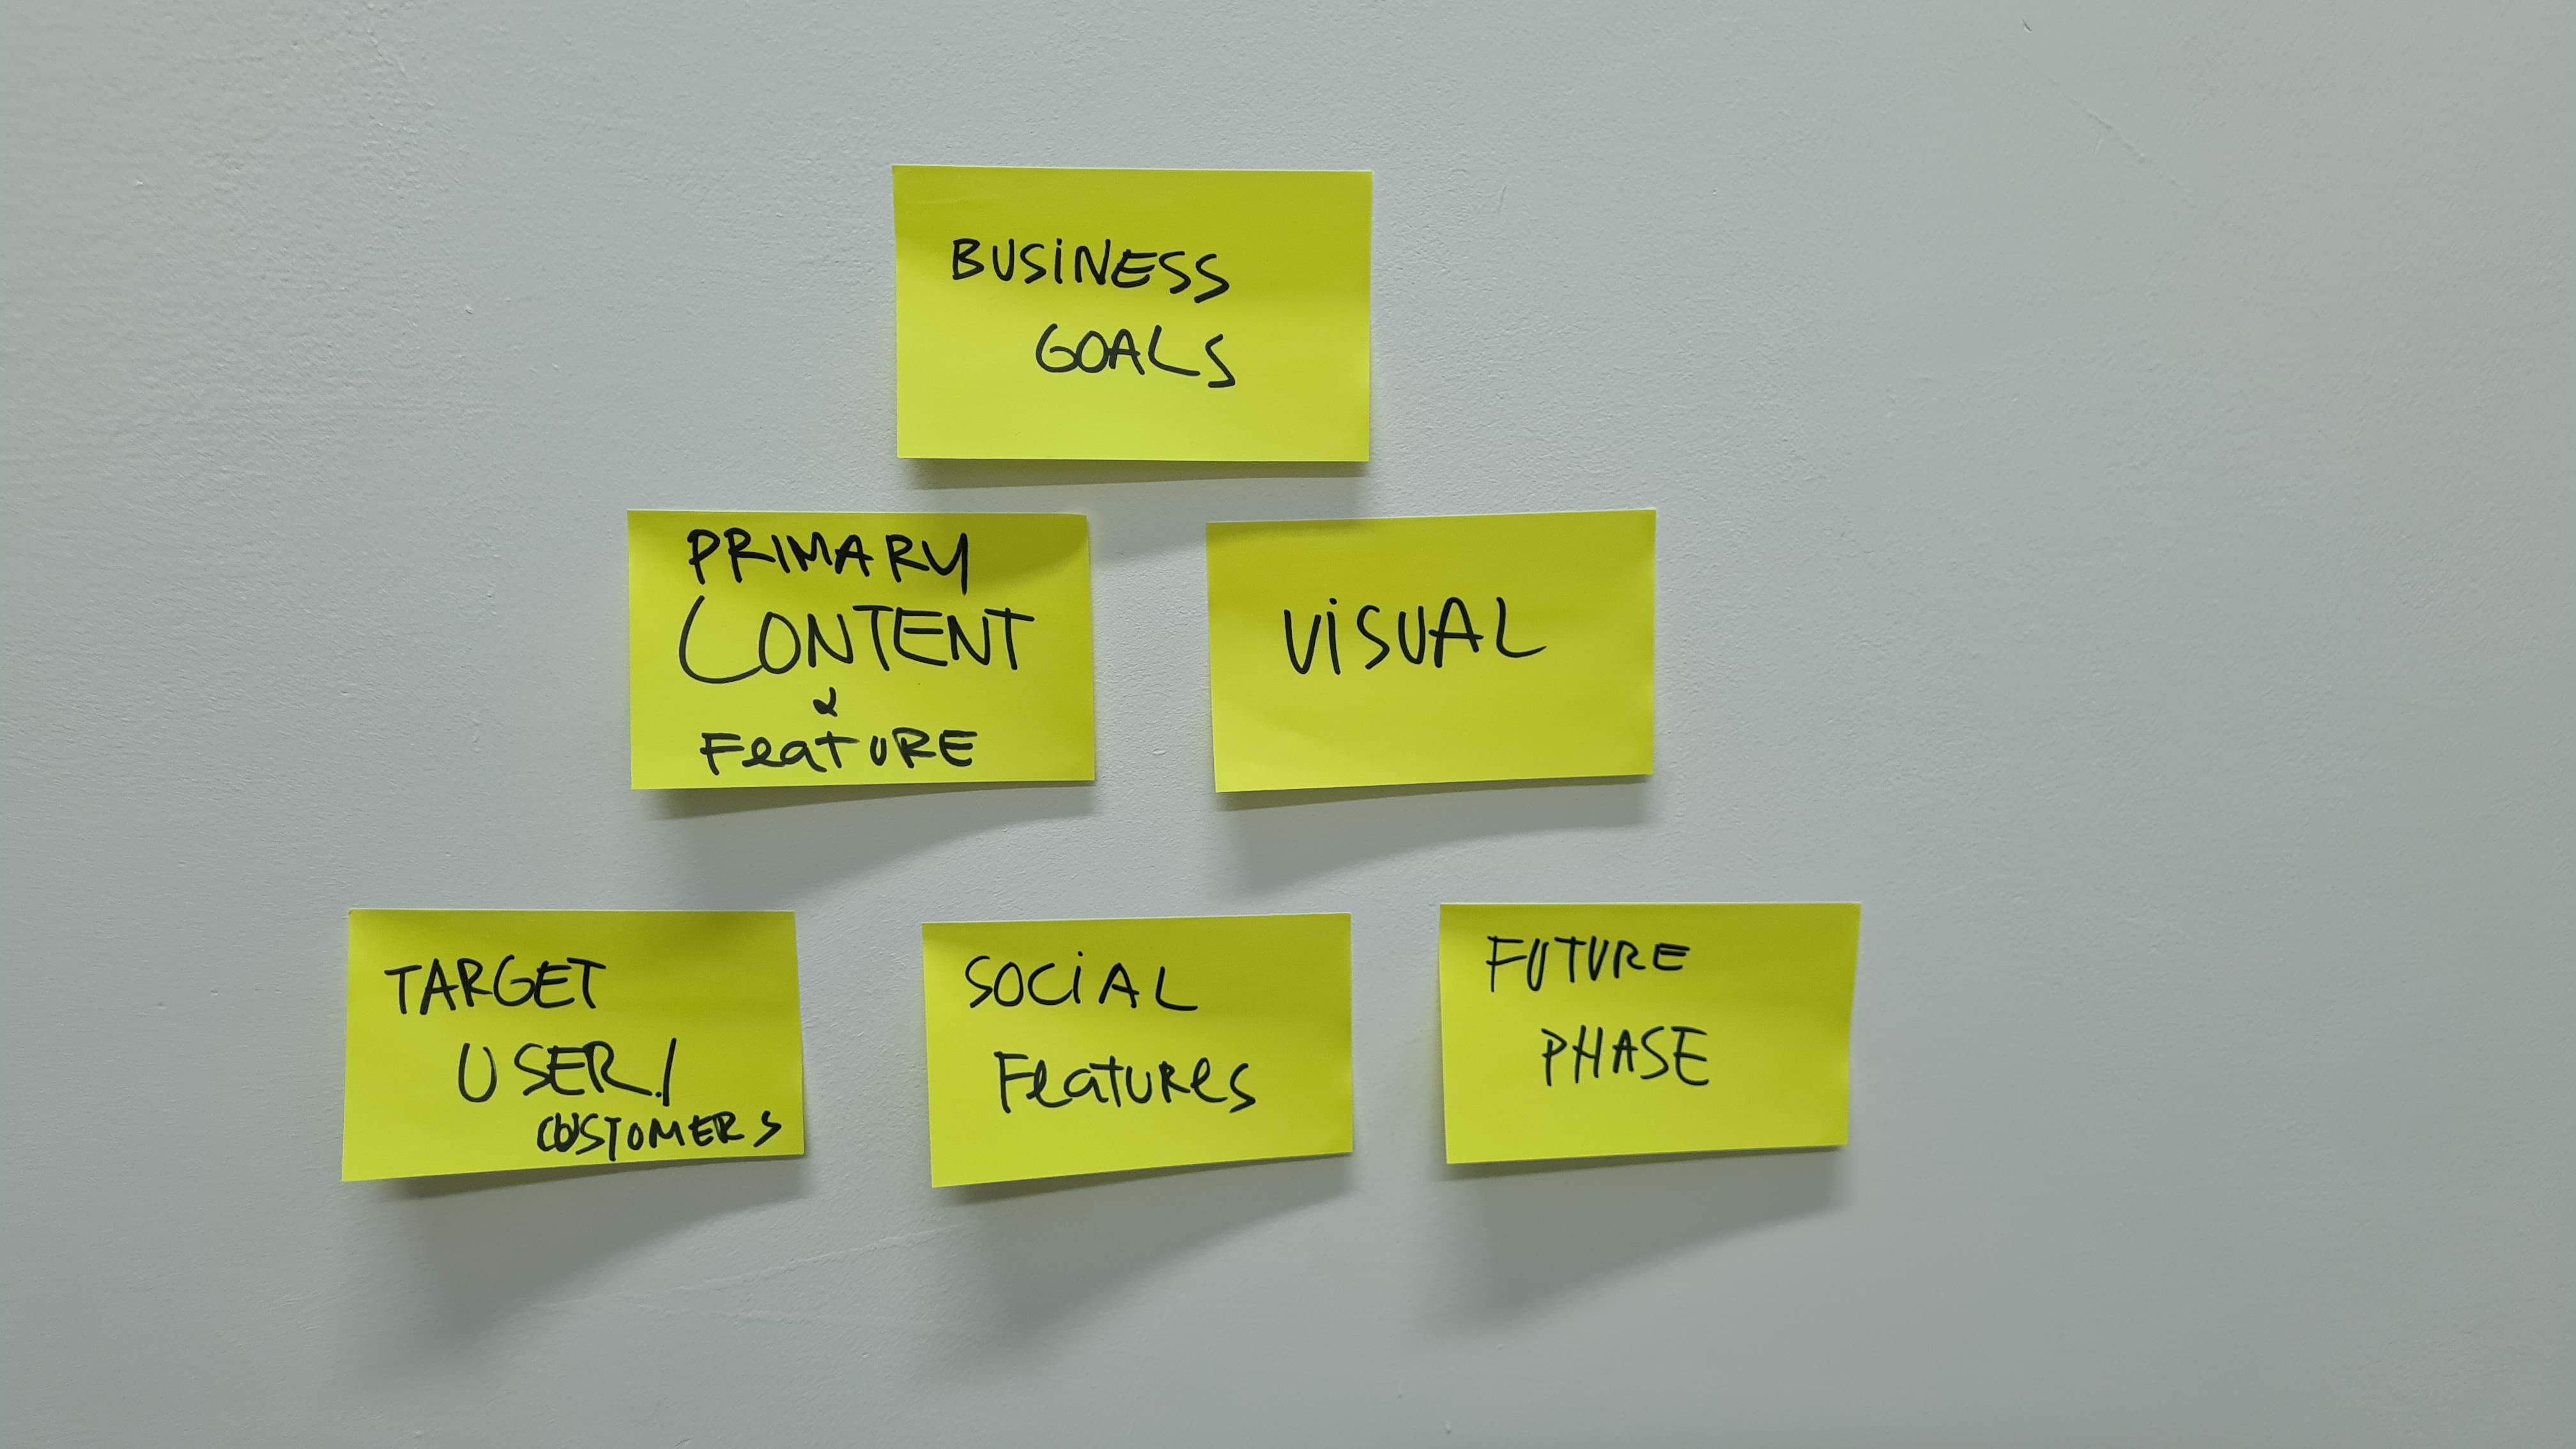 BUSINESS
GOALS
PRIMARY
CONTENT
&
FeatURE
VISUAL
TARGET
USER/
CUSTOMERS
SOCIAL
FeatuReS
FUTURE
PHASE